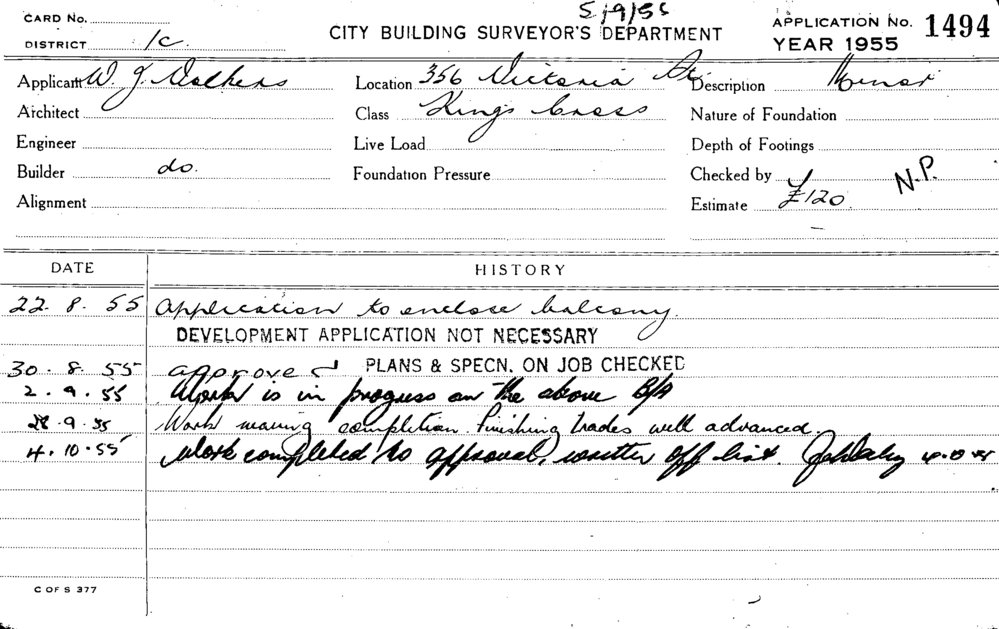 5/9/55
CARD No.
DISTRICT 1c.
CITY BUILDING SURVEYOR'S DEPARTMENT
APPLICATION No. 1494
YEAR 1955
Applicant W. J. Walkers
Location 356 Victoria St.
Description Minor
Architect
Class Kings Cross
Nature of Foundation
Engineer
Live Load
Depth of Footings
Builder do.
Foundation Pressure
Checked by N.P.
Alignment
Estimate £120
DATE HISTORY
22. 8. 55 Application to enclose balcony.
DEVELOPMENT APPLICATION NOT NECESSARY
30. 8. 55 approved PLANS & SPECN. ON JOB CHECKED
2. 9. 55 Work is in progress on the above B/A
9. 55 Work nearing completion. Finishing trades well advanced.
4. 10. 55 Work completed to approval, written off list. 4.10.55
C OF S 377